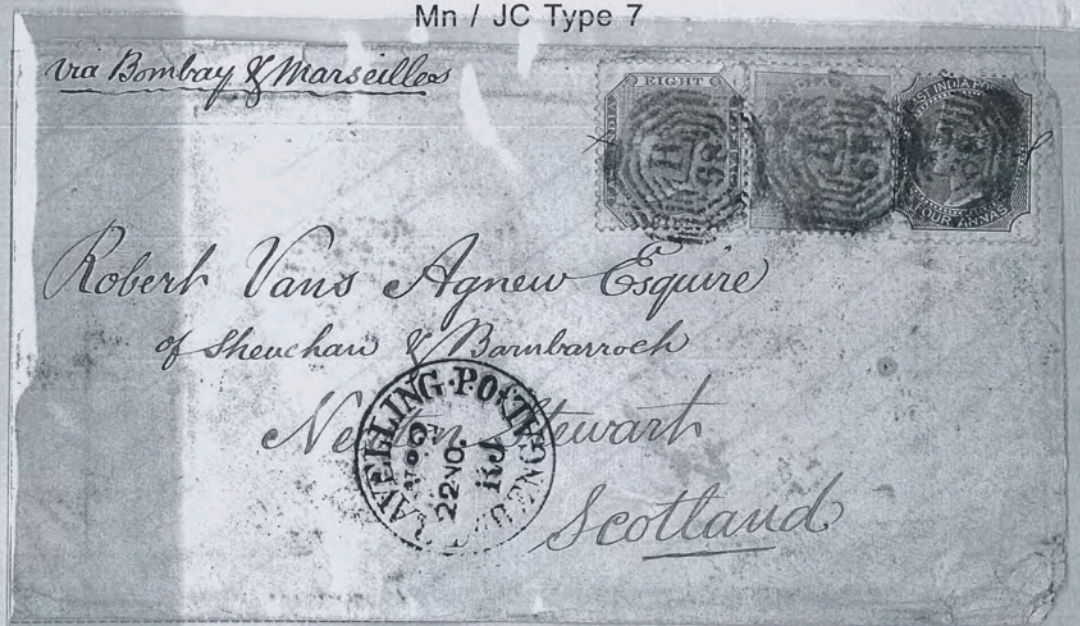 Mn / JC Type 7
via Bombay & Marseilles
EIGHT
INDIA
EAST INDIA
FOUR ANNAS
Robert Vans Agnew Esquire
of Sheuchan & Barnbarroch
Newton Stewart
Scotland
TRAVELLING·PO
BENG
22 NO.